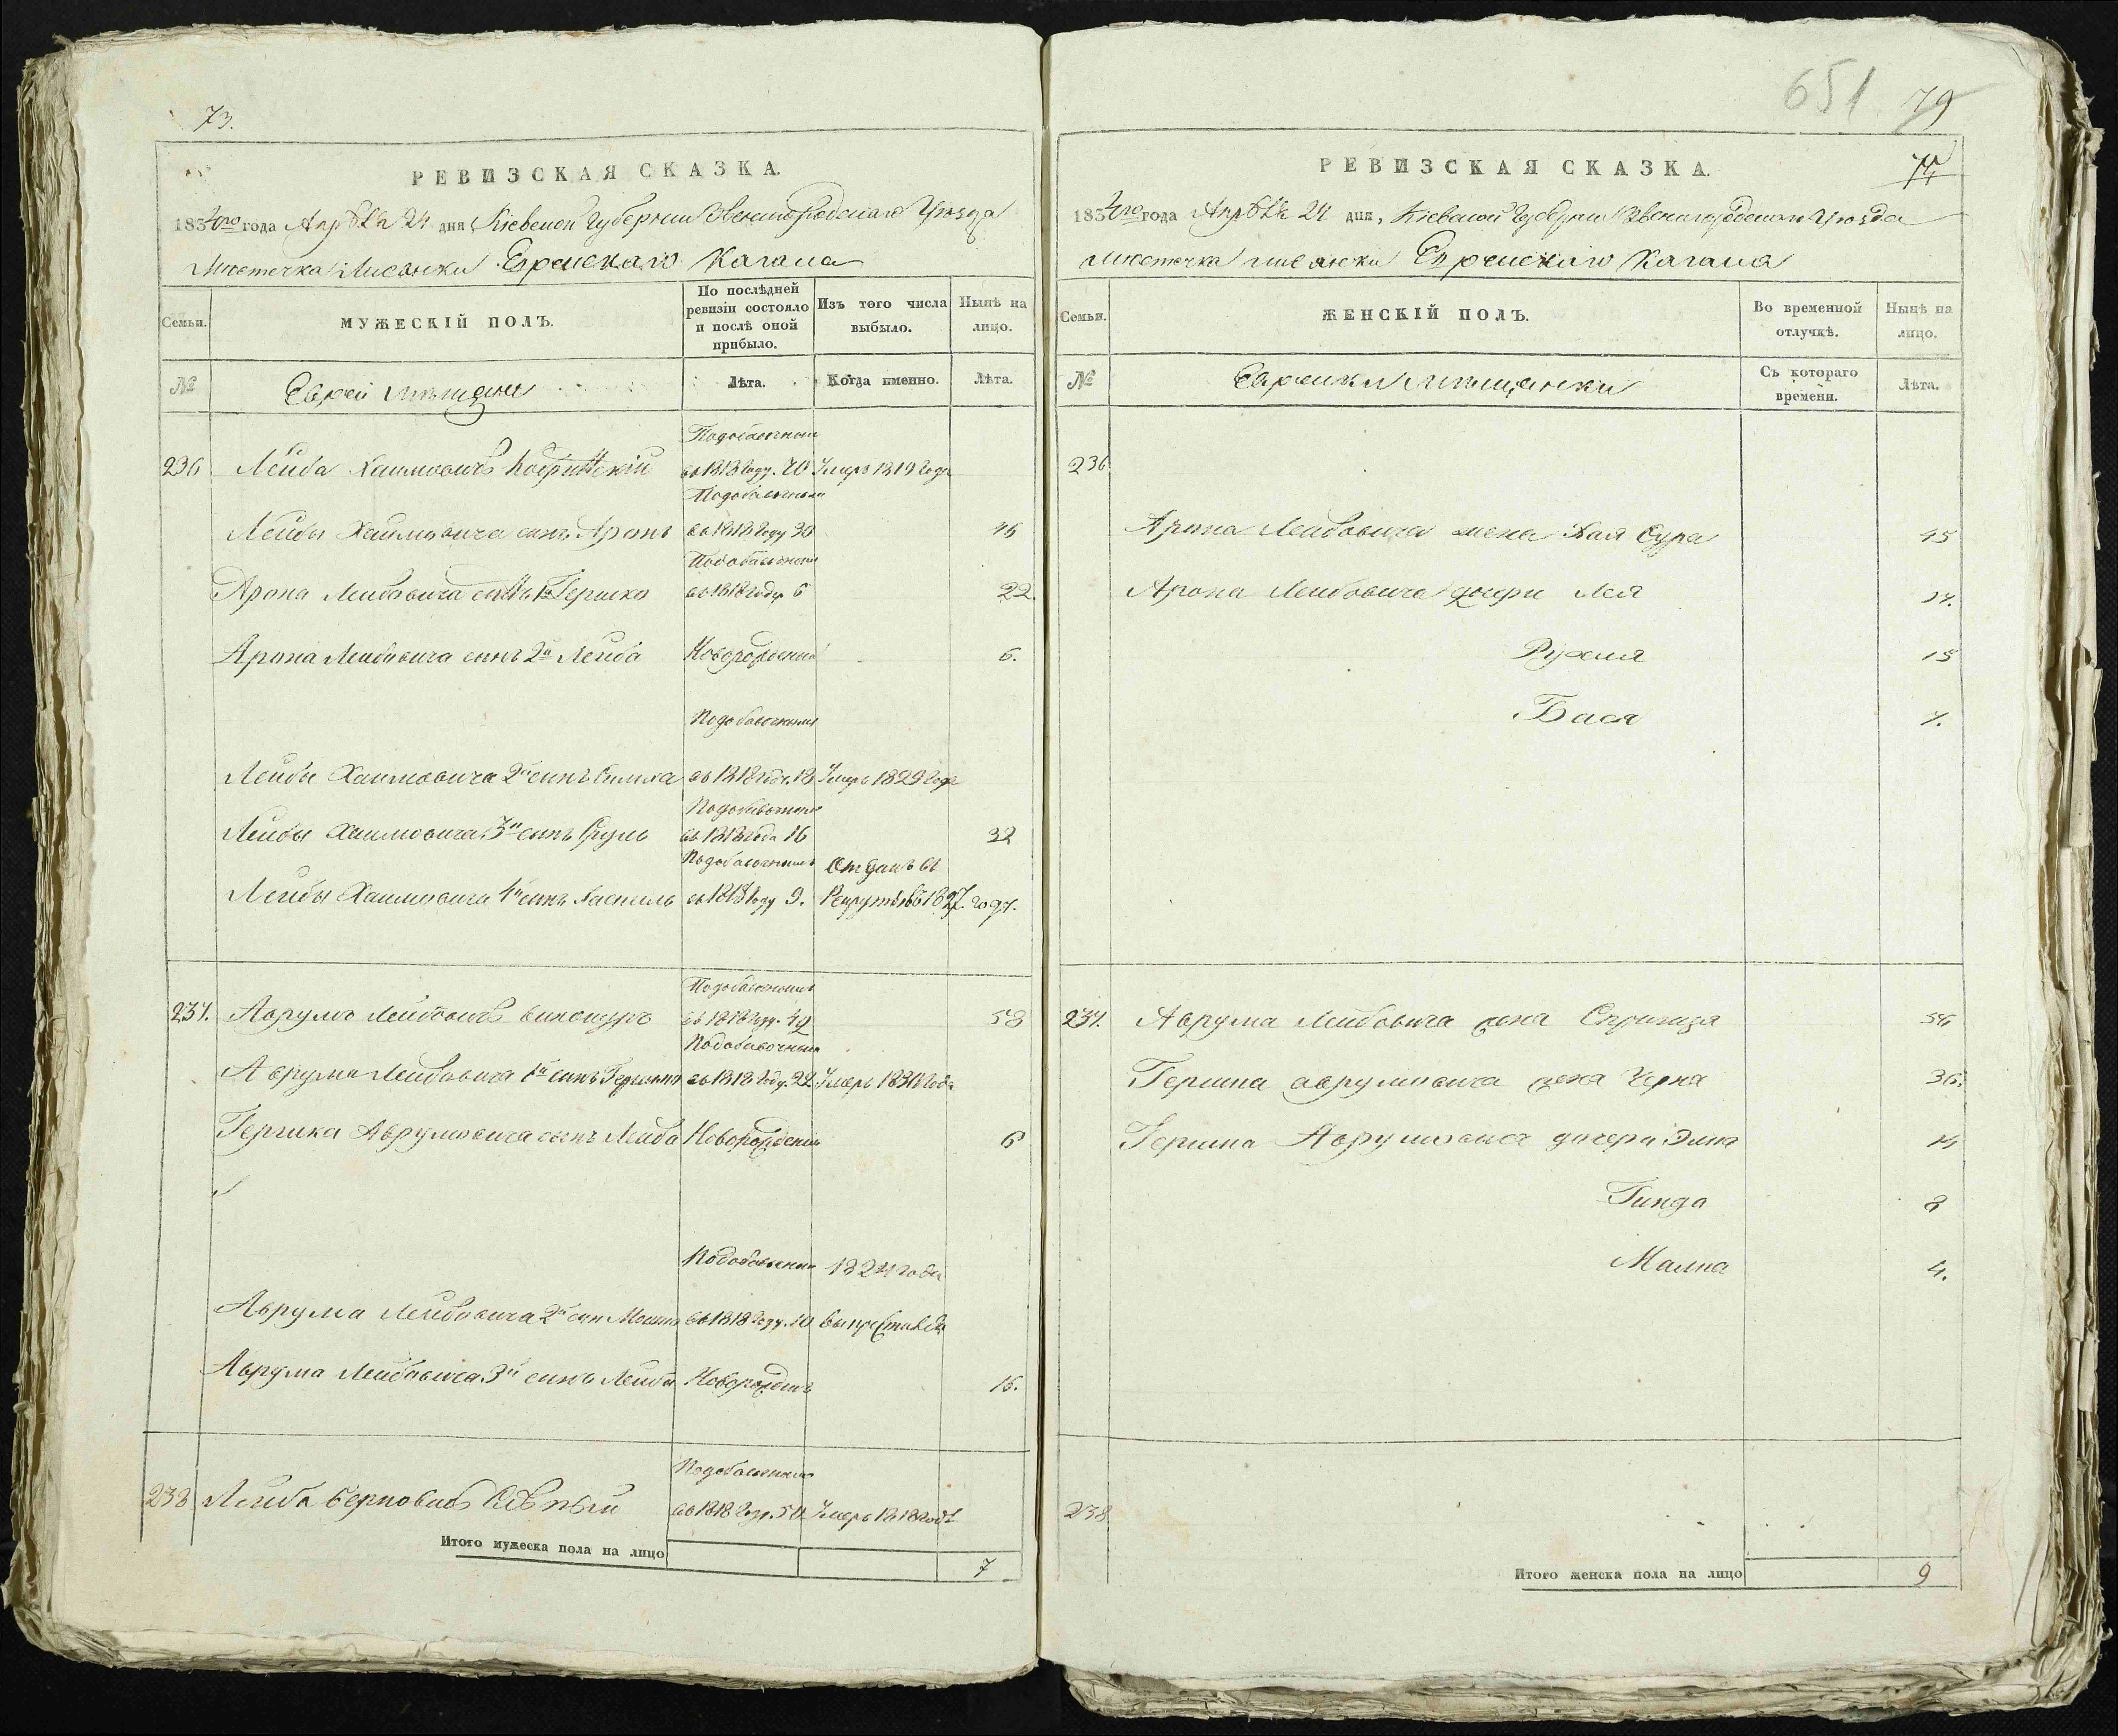 73.
РЕВИЗСКАЯ СКАЗКА.
1834го года Апрѣля 24 дня Кіевской Губерніи Звенигородскаго Уѣзда
Мѣстечка Лисянки Еврейскаго Кагала
Семьи.
МУЖЕСКІЙ ПОЛЪ.
По послѣдней ревизіи состояло и послѣ оной прибыло.
Изъ того числа выбыло.
Нынѣ на лицо.
№
Евреи мѣщане
Лѣта.
Когда именно.
Лѣта.
Подобавочнымъ
236 Лейба Хаимовичъ въ 1818 году. 70 Умеръ 1819 года
Подобавочнымъ
Лейбы Хаимовича сынъ Аронъ въ 1818 году 30 46
Подобавочнымъ
Арона Лейбовича сынъ 1й Гершко въ 1818 году 6 22.
Арона Лейбовича сынъ 2й Лейба Новорожденный 6.
Подобавочнымъ
Лейбы Хаимовича 2й сынъ Симха въ 1818 году. 18 Умеръ 1829 года
Подобавочнымъ
Лейбы Хаимовича 3й сынъ Сруль въ 1818 года 16 32
Подобавочнымъ Отданъ въ
Лейбы Хаимовича 4й сынъ въ 1818 году 9. Рекруты въ 1827. году.
Подобавочнымъ
237. Аврумъ Лейбовичъ Винокуръ въ 1818 году. 42 58
Подобавочнымъ
Аврума Лейбовича 1й сынъ Гершко въ 1818 году. 22 Умеръ 1830 года
Гершка Аврумовича сынъ Лейба Новорожденный 6
Подобавочнымъ 1824 года
Аврума Лейбовича 2й сын Мошко въ 1818 году. 10
Аврума Лейбовича 3й сынъ Лейба Новорожденъ 16.
Подобавочнымъ
238 Лейба Берковичъ въ 1818 году. 50 Умеръ 1818 года
Итого мужеска пола на лицо 7
651 79
74
РЕВИЗСКАЯ СКАЗКА.
1834го года Апрѣля 24 дня, Кіевской Губерніи Звенигородскаго Уѣзда
Мѣстечка Лисянки Еврейскаго Кагала
Семьи.
ЖЕНСКІЙ ПОЛЪ.
Во временной отлучкѣ.
Нынѣ на лицо.
№
Еврейки мѣщанки
Съ котораго времени.
Лѣта.
236
Арона Лейбовича жена Хая Сура 45
Арона Лейбовича дочери Лея 17.
Рухля 15
Бася 7.
237. Аврума Лейбовича жена Спринца 56
Гершка Аврумовича жена Черна 36.
Гершка Аврумовича дочери Элка 14
Гинда 8
Малка 4.
238
Итого женска пола на лицо 9